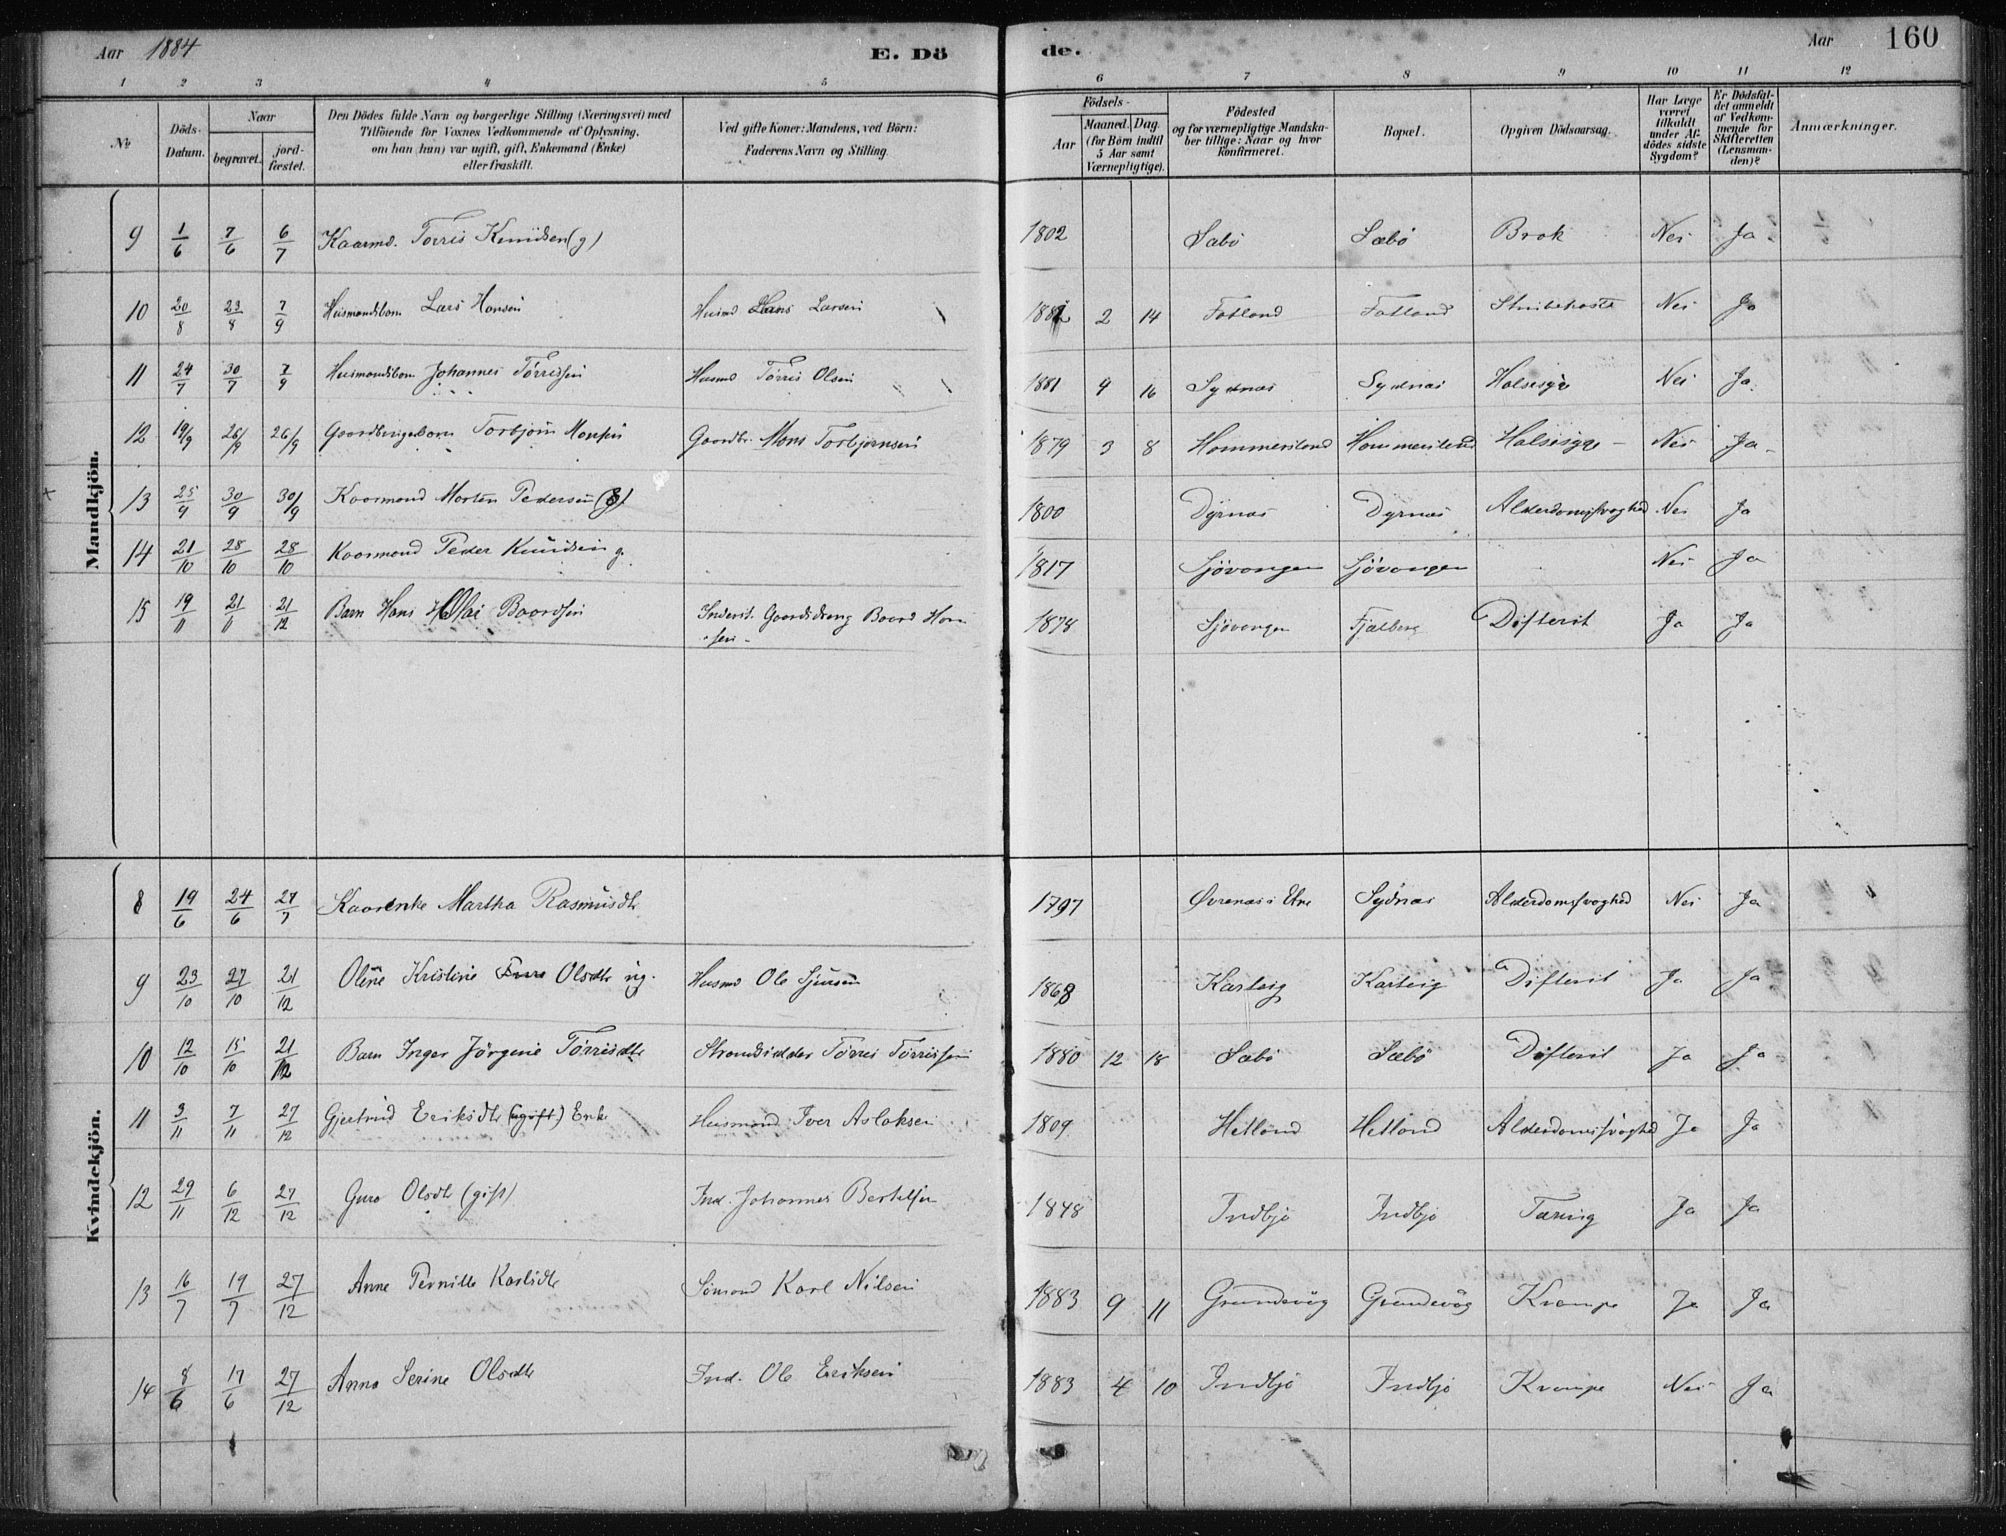 Aar 1884 E. Dö de. Aar 160
1 2 3 4 5 6 7 8 9 10 11 12
№ Döds-Datum. Naar begravet. jord-fæstet. Den Dödes fulde Navn og borgerlige Stilling (Næringsvei) med Tilföiende for Voxnes Vedkommende af Oplysning, om han (hun) var ugift, gift, Enkemand (Enke) eller fraskilt. Ved gifte Koner: Mandens, ved Börn: Faderens Navn og Stilling. Födsels- Aar Maaned. Dag. (for Börn indtil 5 Aar samt Værnepligtige). Födested og for værnepligtige Mandska-ber tillige: Naar og hvor konfirmeret. Bopæl. Opgiven Dödsaarsag. Har Læge været tilkaldt under Af-dödes sidste Sygdom? Er Dödsfal-det anmeldt af Vedkom-mende for Skifteretten (Lensman-den)? Anmærkninger.
Mandkjön.
9 1/6 7/6 6/7 Kaarmd. Torris Knudsen (g) 1802 Sæbö Sæbö Brok Nei Ja
10 20/8 23/8 7/9 Husmandsbarn Lars Hansen Husmd Hans Larsen 1882 2 14 Fatland Fatland Strubehoste Nei Ja
11 24/7 30/7 7/9 Husmandsbarn Johannes Törrissen Husmd Törris Olsen 1881 9 16 Sydnæs Sydnæs Halsesyge Nei Ja.
12 19/9 26/9 26/9 Gaardbrugerbarn Torbjörn Monsen Gaardbr. Mons Torbjörnsen 1879 3 8 Hammersland Hammersland Halsesyge Nei Ja
13 25/9 30/9 30/9 Kaarmand Morten Pedersen (g) 1800 Dyrnæs Dyrnæs Alderdomssvaghed Nei Ja
14 21/10 28/10 28/10 Kaarmand Peder Knudsen g. 1817 Sjövangen Sjövangen Nei Ja
15 19/11 21/11 21/12 Barn Hans Olai Baardsen Inderst. Gaardsdreng Baard Han-sen 1878 Sjövangen Fjælberg Difterit Ja Ja
Kvindekjön.
8 19/6 24/6 27/7 Kaarenke Martha Rasmusdtr 1797 Øvrenæs i Etne Sydnæs Alderdomssvaghed Nei Ja
9 23/10 27/10 21/12 Oline Kristine Olsdtr ug. Husmd Ole Sjursen 1868 Karteig Karteig Difterit Ja Ja
10 12/10 15/10 21/12 Barn Inger Jörgine Törrisdtr Strandsidder Törris Törrissen 1880 12 18 Sæbö Sæbö Difterit Ja Ja
11 3/11 7/11 27/12 Gjertrud Eriksdtr (ugift) Enke Husmand Iver Aslaksen 1809 Hetland Hetland Alderdomssvaghed Ja Ja
12 29/11 6/12 27/12 Guro Olsdtr (gift) Ind. Johannes Bertelsen 1848 Indbjö Indbjö Tæring Ja Ja
13 16/7 19/7 27/12 Anne Pernille Karlsdtr Sömand Karl Nilsen 1883 9 11 Grundevåg Grundevåg Krampe Ja Ja
14 8/6 17/6 27/12 Anna Serine Olsdtr Ind. Ole Eriksen 1883 4 10 Indbjö Indbjö Krampe Nei Ja